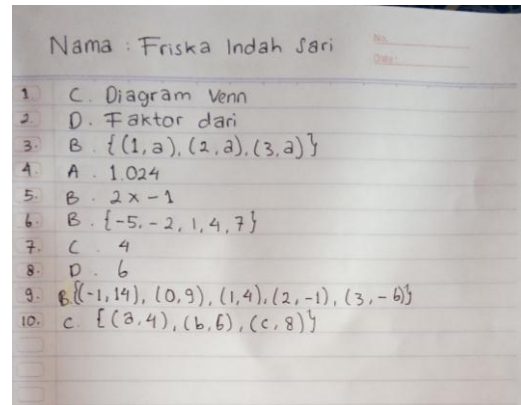 No.
Date:
Nama : Friska Indah Sari
1. C. Diagram Venn
2. D. Faktor dari
3. B. {(1,a), (2,a), (3,a)}
4. A. 1.024
5. B. 2x - 1
6. B. {-5. - 2, 1, 4, 7}
7. C. 4
8. D. 6
9. B. {(-1, 14), (0,9), (1,4), (2, -1), (3, - 6)}
10. C. {(a, 4), (b, 6), (c, 8)}